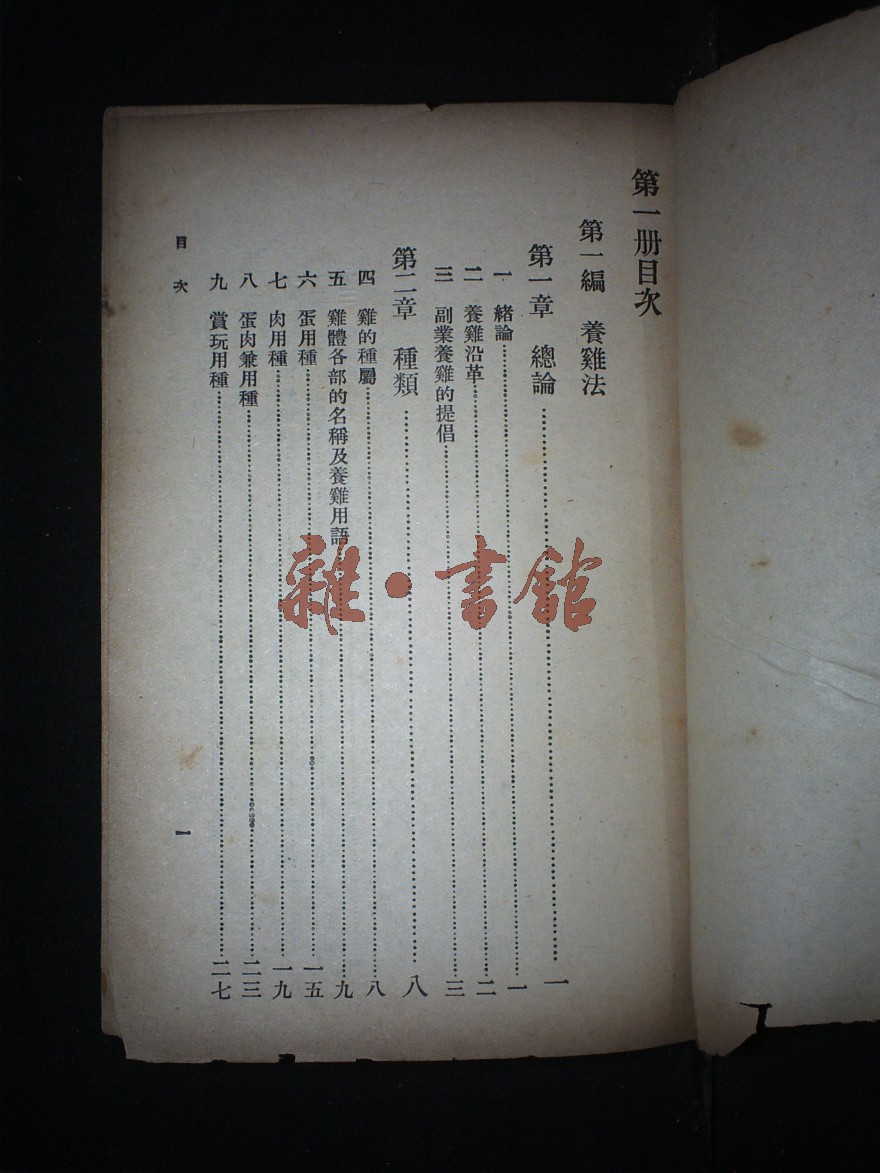 第一册目次
第一編 養雞法
第一章 總論……一
一 緒論……一
二 養雞沿革……二
三 副業養雞的提倡……三
第二章 種類……八
四 雞的種屬……八
五 雞體各部的名稱及養雞用語……九
六 蛋用種……一五
七 肉用種……一九
八 蛋肉兼用種……二三
九 賞玩用種……二七
目次 一
雜·書館